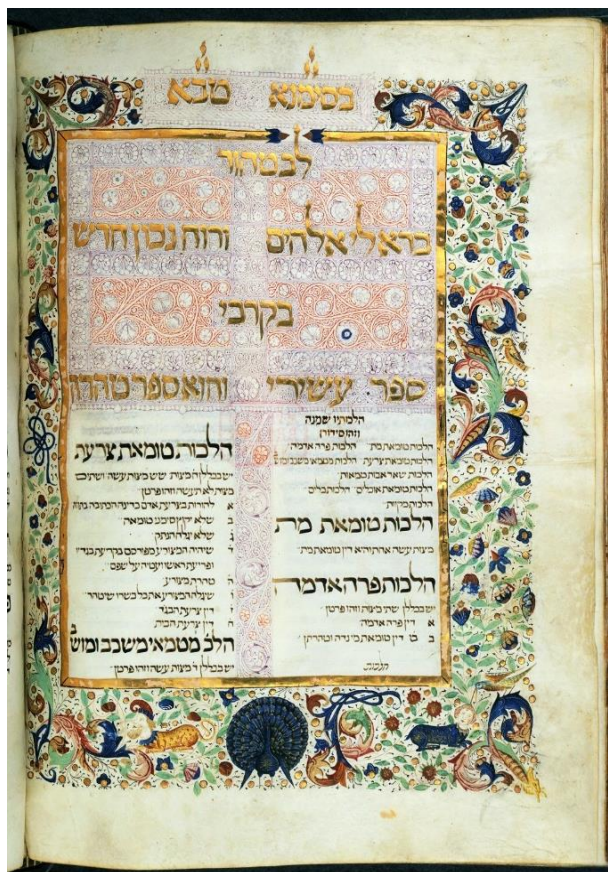 בסימנא טבא
לב טהור
ברא לי אלהים ורוח נכון חדש
בקרבי
ספר עשירי והוא ספר טהרה
הלכותיו שמנה
וזה סידורן
הלכות טומאת מת הלכות פרה אדומה
הלכות טומאת צרעת הלכות מטמאי
הלכות שאר אבות טמאות
הלכות טומאת אוכלים הלכות כלים
הלכות מקואות
הלכות טומאת מת
מצות עשה אחת והיא דין טומאת מת
הלכות פרה אדמה
יש בכללן שתי מצות וזהו פרטן
א דין פרה אדומה
ב דין טומאת מי נדה וטהרתן
הלכות
הלכות טומאת צרעת
יש בכללן מצות שש מצות עשה ושתים
מצות לא תעשה וזהו פרטן
א להורות בצרעת אדם כדינה הכתוב בתורה
ב שלא יקוץ סימני טומאה
ג שלא יגלח הנתק
ד שיהיה המצורע מפורסם בקריעת בגדיו
ופריעת ראשו ועטיה על שפם
ה טהרת צרעת
ו שיגלח המצורע את כל בשרו כשיטהר
ז דין צרעת הבגד
ח דין צרעת הבית
הלכ מטמאי משכב ומוש
ב
יש בכללן ד מצות עשה וזהו פרטן